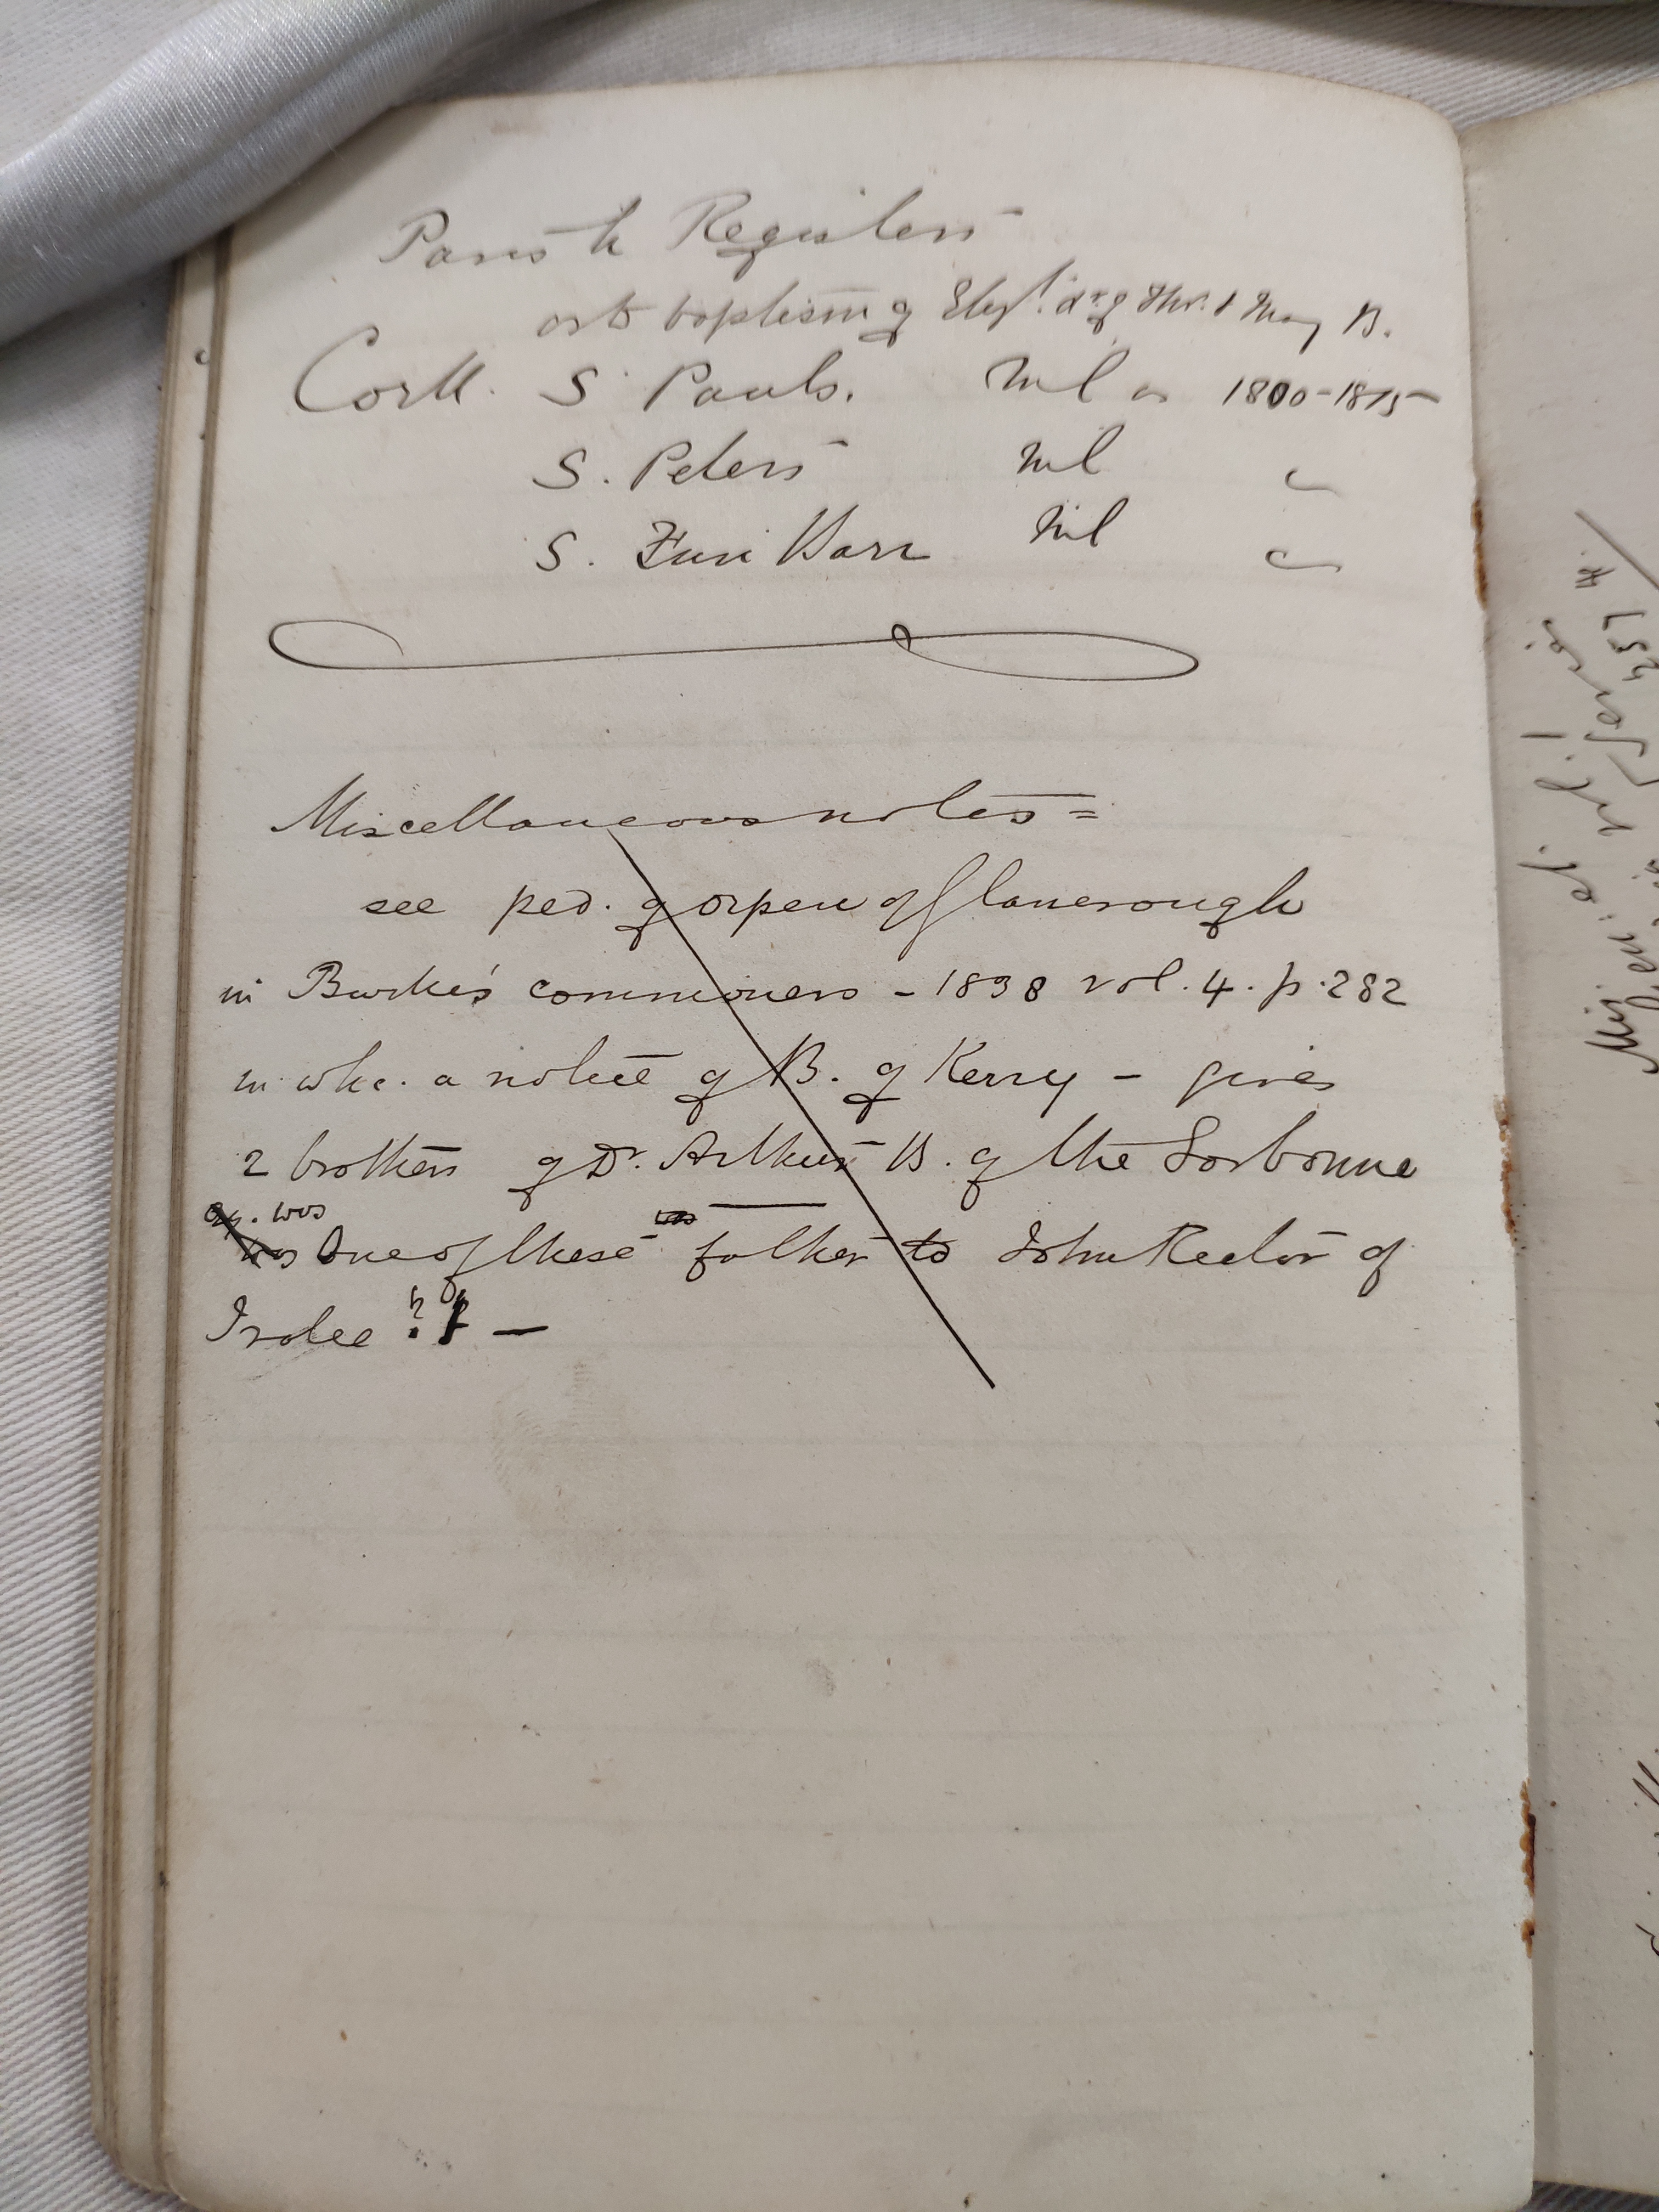 Parish Registers
as to baptism of Eliz. dr. of Thos. & Mary B.
Cork. S. Pauls. Nil as 1800-1815
S. Peters Nil "
S. Finn Barr Nil "
Miscellaneous notes =
see ped. of Orpen of Glanerough
in Burke's commoners - 1838 vol. 4. p. 282
in whc. a notice of B. of Kerry - gives
2 brothers of Dr. Arthur B. of the Sorbonne
qy. was
One of these father to John Rector of
Tralee ? —